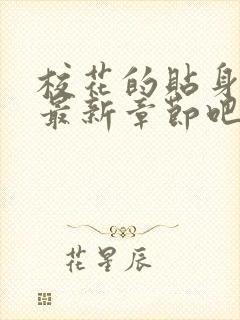 校花的贴身
最新章節吧
花星辰